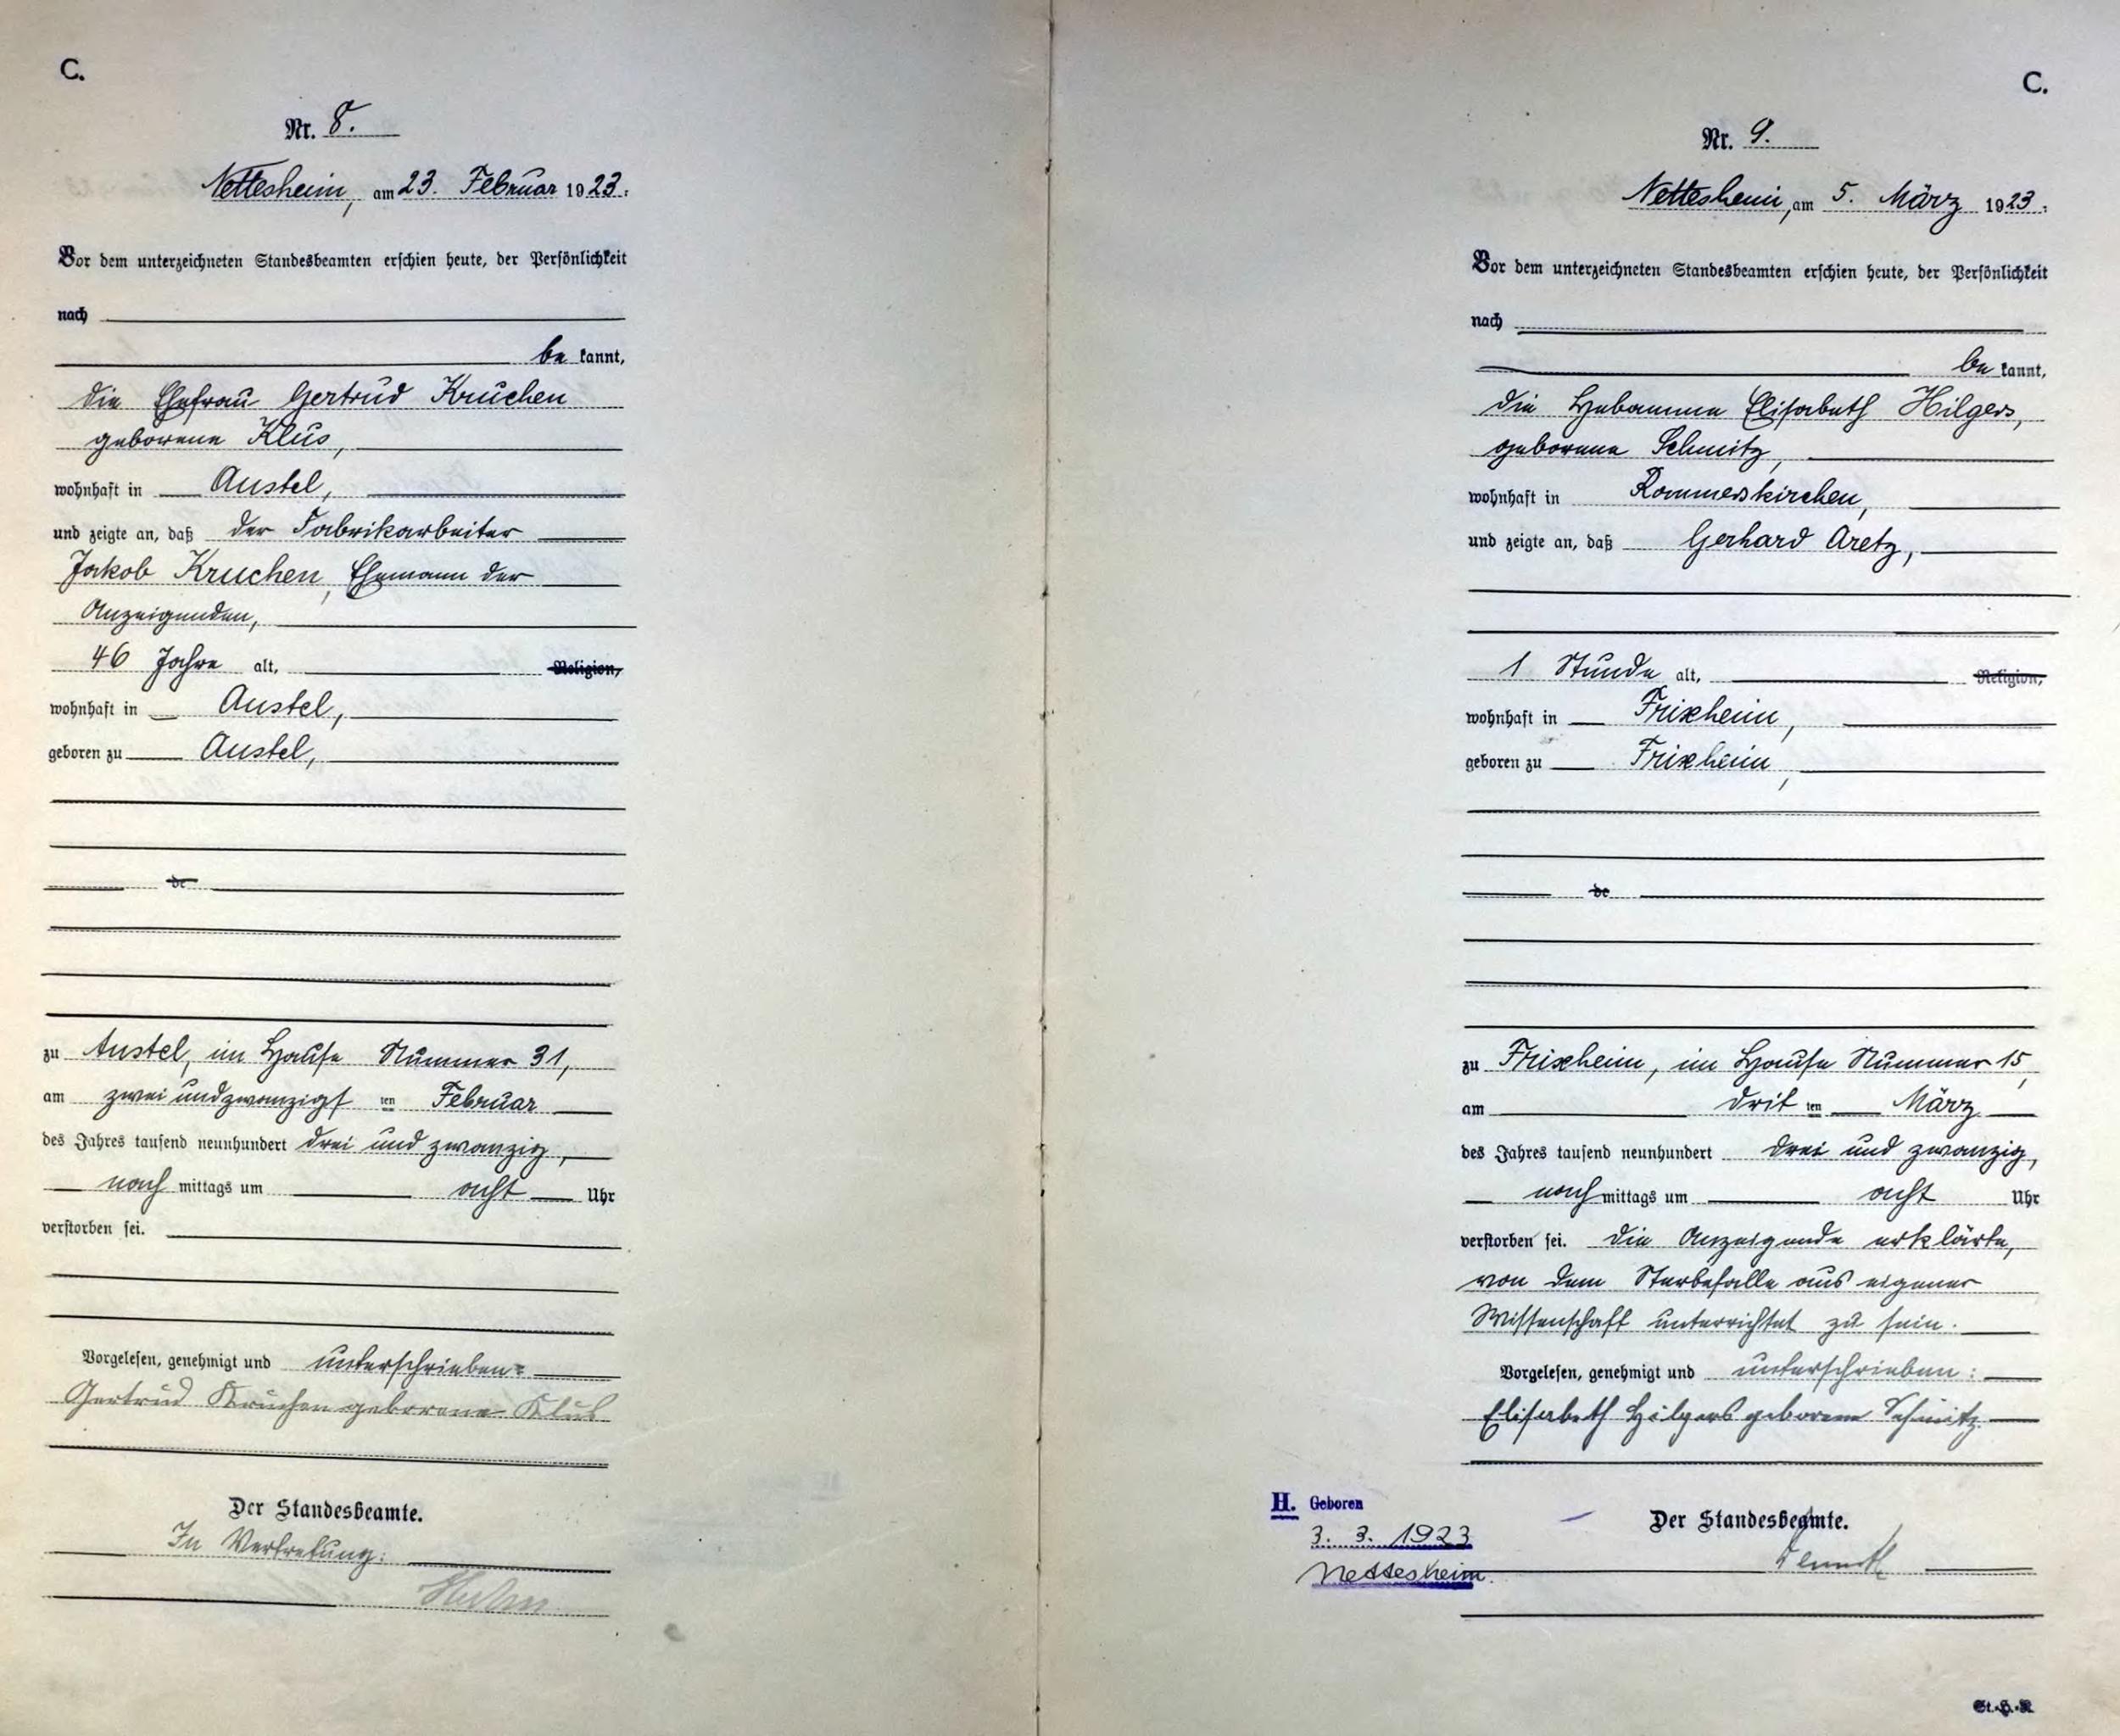 C.
Nr. 8.
Nettesheim, am 23. Februar 1923.
Vor dem unterzeichneten Standesbeamten erschien heute, der Persönlichkeit
nach
be kannt,
die Ehefrau Gertrud Kruchen
geborene Klus,
wohnhaft in Anstel,
und zeigte an, daß der Fabrikarbeiter
Jakob Kruchen, Ehemann der
Anzeigenden,
46 Jahre alt, Religion,
wohnhaft in Anstel,
geboren zu Anstel,
de
zu Anstel, im Hause Nummer 31,
am zwei undzwanzigsten Februar
des Jahres tausend neunhundert drei und zwanzig,
nach mittags um acht Uhr
verstorben sei.
Vorgelesen, genehmigt und unterschrieben:
Gertrud Kruchen geborene Klus
Der Standesbeamte.
In Vertretung:
C.
Nr. 9.
Nettesheim, am 5. März 1923.
Vor dem unterzeichneten Standesbeamten erschien heute, der Persönlichkeit
nach
be kannt,
die Hebamme Elisabeth Hilgers,
geborene Schmitz,
wohnhaft in Rommerskirchen,
und zeigte an, daß Gerhard Aretz,
1 Stunde alt, Religion,
wohnhaft in Frixheim,
geboren zu Frixheim,
de
zu Frixheim, im Hause Nummer 15,
am dritten März
des Jahres tausend neunhundert drei und zwanzig,
nach mittags um acht Uhr
verstorben sei. Die Anzeigende erklärte,
von dem Sterbefalle aus eigener
Wissenschaft unterrichtet zu sein.
Vorgelesen, genehmigt und unterschrieben:
Elisabeth Hilgers geborene Schmitz
Der Standesbeamte.
H. Geboren
3. 3. 1923
Nettesheim.
St.-H.-R.